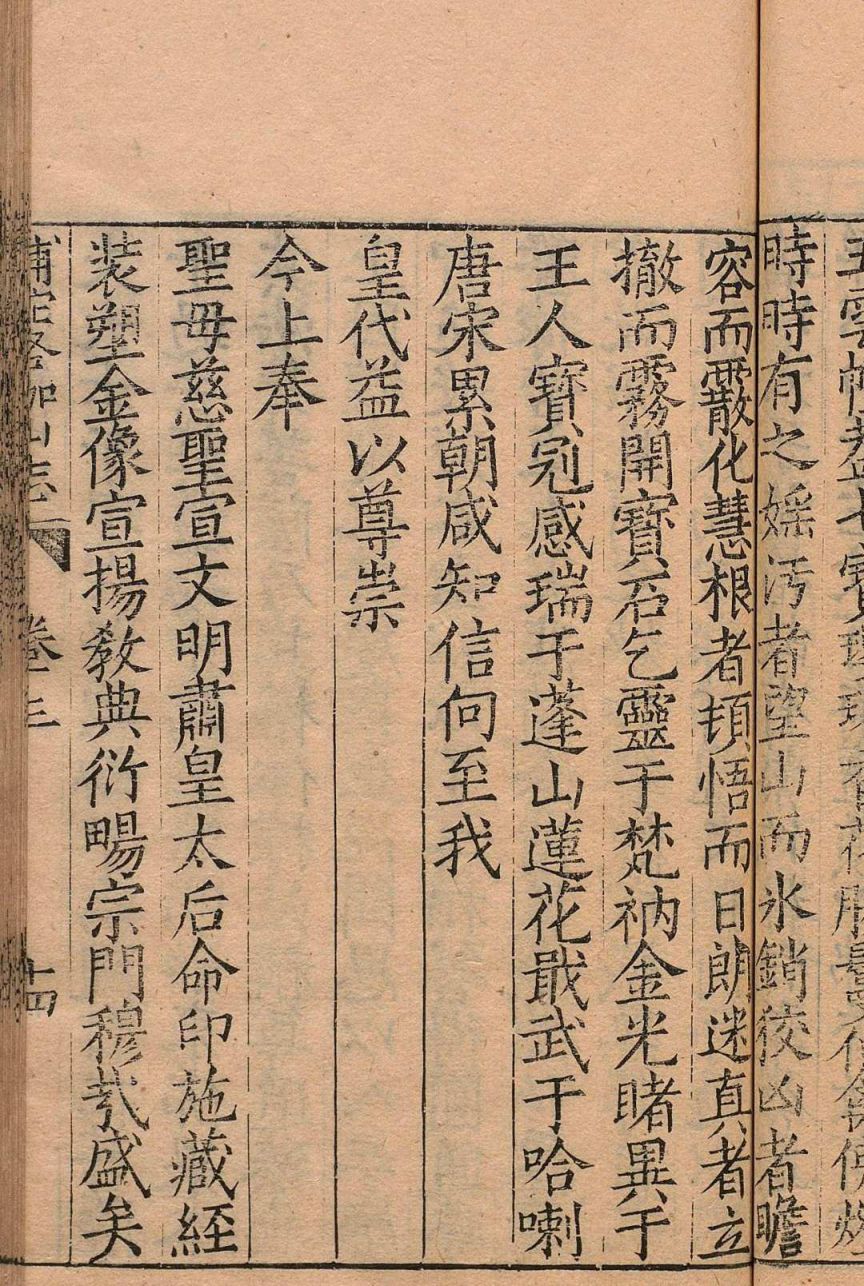 時時有之媱汚者望山而氷銷狡凶者瞻
容而霰化慧根者頓悟而日朗迷真者立
撤而霧開寶石乞靈于梵衲金光睹異于
王人寳冠感瑞于蓬山蓮花戢武于哈喇
唐宋累朝咸知信向至我
皇代益以尊崇
今上奉
聖母慈聖宣文明肅皇太后命印施藏經
装塑金像宣揚敎典衍暢宗門穆㢤盛矣
卷三
十四